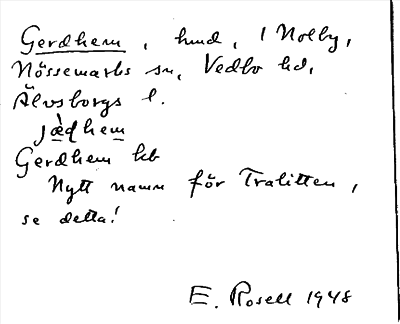 Gerdhem, hmd, 1 Nolby,
Nössemarks sn, Vedbo hd,
Älvsborgs l.
jæ̀dhem
Gerdhem kb
Nytt namn för Tralitten,
se detta!
E. Rosell 1948